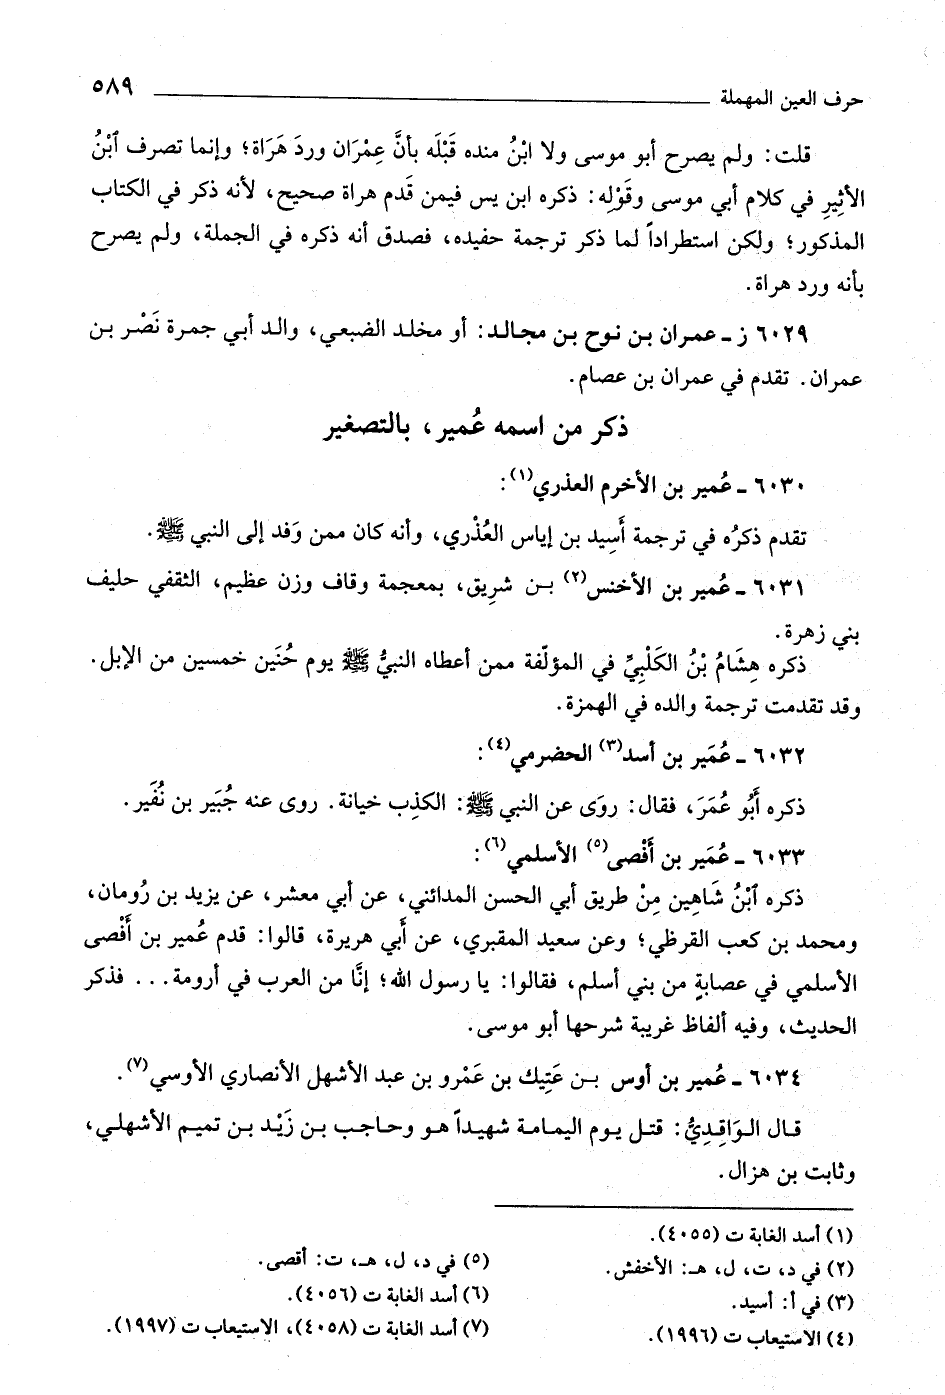 حرف العين المهملة ٥٨٩
قلت: ولم يصرح أبو موسى ولا ابْنُ منده قَبْلَه بأنَّ عِمْرَان وردَ هَرَاة؛ وإنما تصرف ٱبْنُ
الأثِيرِ في كلام أبي موسى وقَوْلِه: ذكره ابن يس فيمن قَدم هراة صحيح، لأنه ذكر في الكتاب
المذكور؛ ولكن استطراداً لما ذكر ترجمة حفيده، فصدق أنه ذكره في الجملة، ولم يصرح
بأنه ورد هراة.
٦٠٢٩ ز ـ عمران بن نوح بن مجالد: أو مخلد الضبعي، والد أبي جمرة نَصْر بن
عمران. تقدم في عمران بن عصام.
ذكر من اسمه عُمير، بالتصغير
٦٠٣٠ ـ عُمير بن الأخرم العذري(١):
تقدم ذكرُه في ترجمة أَسِيد بن إياس العُذْري، وأنه كان ممن وَفد إلى النبي ﷺ.
٦٠٣١ ـ عُمير بن الأخنس(٢) بن شرِيق، بمعجمة وقاف وزن عظيم، الثقفي حليف
بني زهرة.
ذكره هِشَامُ بْنُ الكَلْبِيِّ في المؤلّفة ممن أعطاه النبيُّ ﷺ يوم حُنَين خمسين من الإبل.
وقد تقدمت ترجمة والده في الهمزة.
٦٠٣٢ ـ عُمَير بن أسد(٣) الحضرمي(٤):
ذكره أَبُو عُمَرَ، فقال: روَى عن النبي ﷺ: الكذِب خيانة. روى عنه جُبَير بن نُفَير.
٦٠٣٣ ـ عُمَير بن أَفْصى(٥) الأسلمي(٦):
ذكره ٱبْنُ شَاهِين مِنْ طريق أبي الحسن المدائني، عن أبي معشر، عن يزيد بن رُومان،
ومحمد بن كعب القرظي؛ وعن سعيد المقبري، عن أَبي هريرة، قالوا: قدم عُمير بن أَفْصى
الأسلمي في عصابةٍ من بني أسلم، فقالوا: يا رسول الله؛ إنَّا من العرب في أرومة... فذكر
الحديث، وفيه ألفاظ غريبة شرحها أبو موسى.
٦٠٣٤ ـ عُمير بن أوس بن عَتِيك بن عَمْرو بن عبد الأشهل الأنصاري الأوسي(٧).
قال الوَاقِدِيُّ: قتل يوم اليمامة شهيداً هو وحاجب بن زَيْد بن تميم الأشهلي،
وثابت بن هزال.
(١) أسد الغابة ت (٤٠٥٥).
(٢) في د، ت، ل، هـ: الأخفش.
(٣) في أ: أسيد.
(٤) الاستيعاب ت (١٩٩٦).
(٥) في د، ل، هـ، ت: أقصى.
(٦) أسد الغابة ت (٤٠٥٦).
(٧) أسد الغابة ت (٤٠٥٨)، الاستيعاب ت (١٩٩٧).